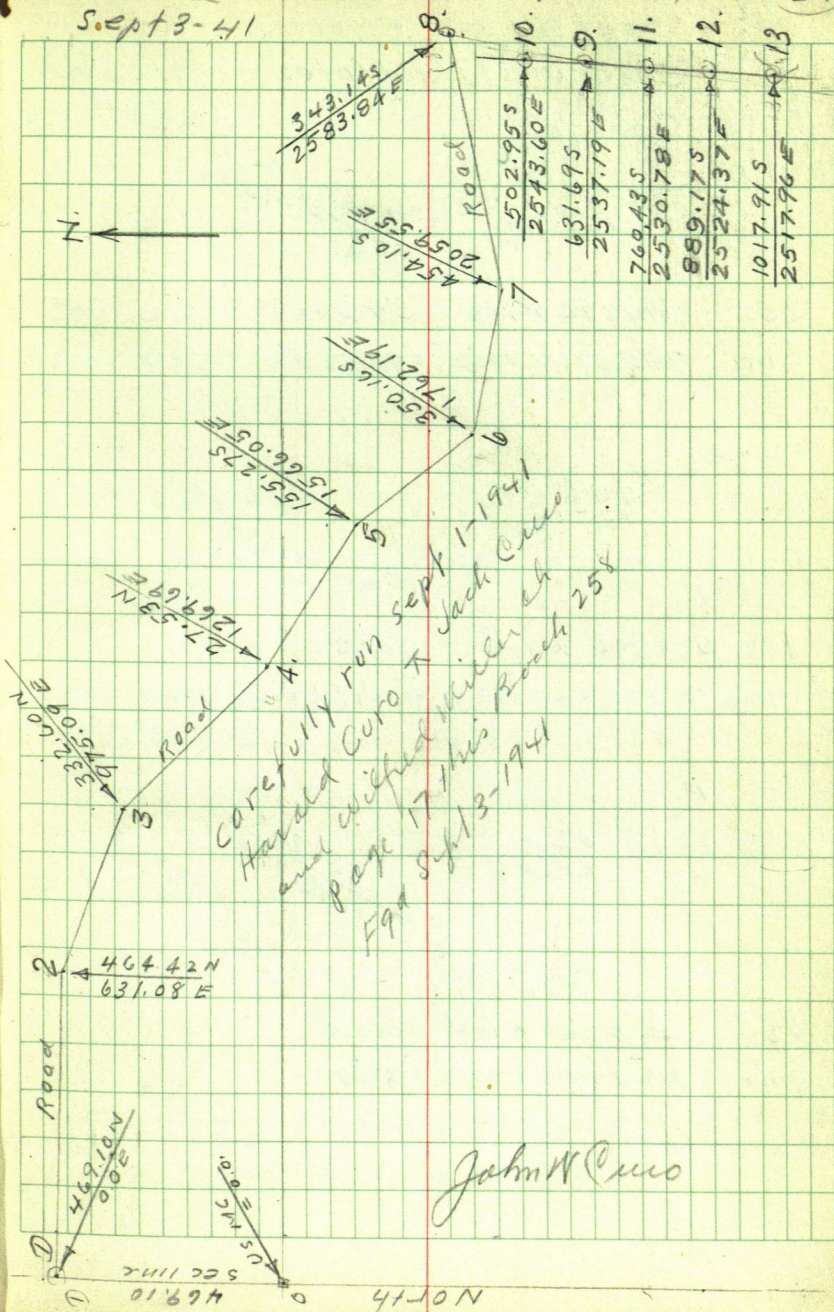 14-3+4d.S
8.
343.14S
2583.84E
Road
10.
502.95S
2543.60E
9.
631.69S
2537.19E
11.
760.43S
2530.78E
12.
889.17S
2524.37E
13
1017.91S
2517.96E
N
454.10S
2059.55E
7
350.16S
1762.19E
6
155.27S
1566.05E
5
27.53N
1269.69E
4.
Road
332.60N
975.09E
3
2
464.42N
631.08E
Road
469.10N
0.0E
1
469.10
sec line
North
0
US MC
E 0.0'
Carefully run Sept 1-1941
Harald Curo + Jack Curo
and Wilfred
page 17 this Book 258
Sept 3-1941
John W Curo